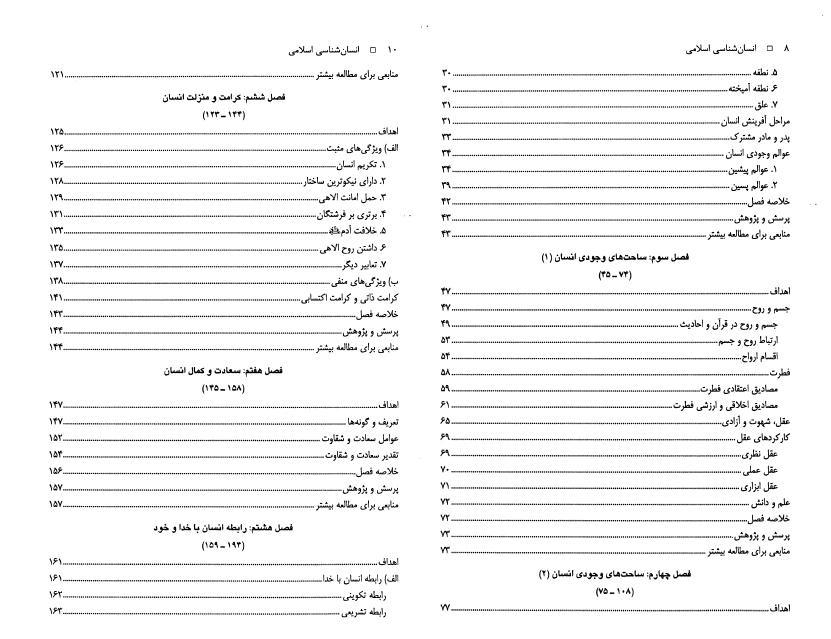 ۸ □ انسان‌شناسی اسلامی
۵. نطفه ..... ۳۰
۶. نطفه آمیخته ..... ۳۰
۷. علق ..... ۳۱
مراحل آفرینش انسان ..... ۳۱
پدر و مادر مشترک ..... ۳۳
عوالم وجودی انسان ..... ۳۴
۱. عوالم پیشین ..... ۳۴
۲. عوالم پسین ..... ۳۹
خلاصه فصل ..... ۴۲
پرسش و پژوهش ..... ۴۳
منابعی برای مطالعه بیشتر ..... ۴۳
فصل سوم: ساحت‌های وجودی انسان (۱)
(۷۴ ـ ۴۵)
اهداف ..... ۴۷
جسم و روح ..... ۴۷
جسم و روح در قرآن و احادیث ..... ۴۹
ارتباط روح و جسم ..... ۵۳
اقسام ارواح ..... ۵۴
فطرت ..... ۵۸
مصادیق اعتقادی فطرت ..... ۵۹
مصادیق اخلاقی و ارزشی فطرت ..... ۶۱
عقل، شهوت و آزادی ..... ۶۵
کارکردهای عقل ..... ۶۹
عقل نظری ..... ۶۹
عقل عملی ..... ۷۰
عقل ابزاری ..... ۷۱
علم و دانش ..... ۷۲
خلاصه فصل ..... ۷۲
پرسش و پژوهش ..... ۷۳
منابعی برای مطالعه بیشتر ..... ۷۳
فصل چهارم: ساحت‌های وجودی انسان (۲)
(۱۰۸ ـ ۷۵)
اهداف ..... ۷۷
۱۰ □ انسان‌شناسی اسلامی
منابعی برای مطالعه بیشتر ..... ۱۲۱
فصل ششم: کرامت و منزلت انسان
(۱۴۴ ـ ۱۲۳)
اهداف ..... ۱۲۵
الف) ویژگی‌های مثبت ..... ۱۲۶
۱. تکریم انسان ..... ۱۲۶
۲. دارای نیکوترین ساختار ..... ۱۲۸
۳. حمل امانت الاهی ..... ۱۲۹
۴. برتری بر فرشتگان ..... ۱۳۱
۵. خلافت آدم ..... ۱۳۳
۶. داشتن روح الاهی ..... ۱۳۵
۷. تعابیر دیگر ..... ۱۳۷
ب) ویژگی‌های منفی ..... ۱۳۸
کرامت ذاتی و کرامت اکتسابی ..... ۱۴۱
خلاصه فصل ..... ۱۴۳
پرسش و پژوهش ..... ۱۴۴
منابعی برای مطالعه بیشتر ..... ۱۴۴
فصل هفتم: سعادت و کمال انسان
(۱۵۸ ـ ۱۴۵)
اهداف ..... ۱۴۷
تعریف و گونه‌ها ..... ۱۴۷
عوامل سعادت و شقاوت ..... ۱۵۲
تقدیر سعادت و شقاوت ..... ۱۵۴
خلاصه فصل ..... ۱۵۶
پرسش و پژوهش ..... ۱۵۷
منابعی برای مطالعه بیشتر ..... ۱۵۷
فصل هشتم: رابطه انسان با خدا و خود
(۱۹۴ ـ ۱۵۹)
اهداف ..... ۱۶۱
الف) رابطه انسان با خدا ..... ۱۶۱
رابطه تکوینی ..... ۱۶۲
رابطه تشریعی ..... ۱۶۳